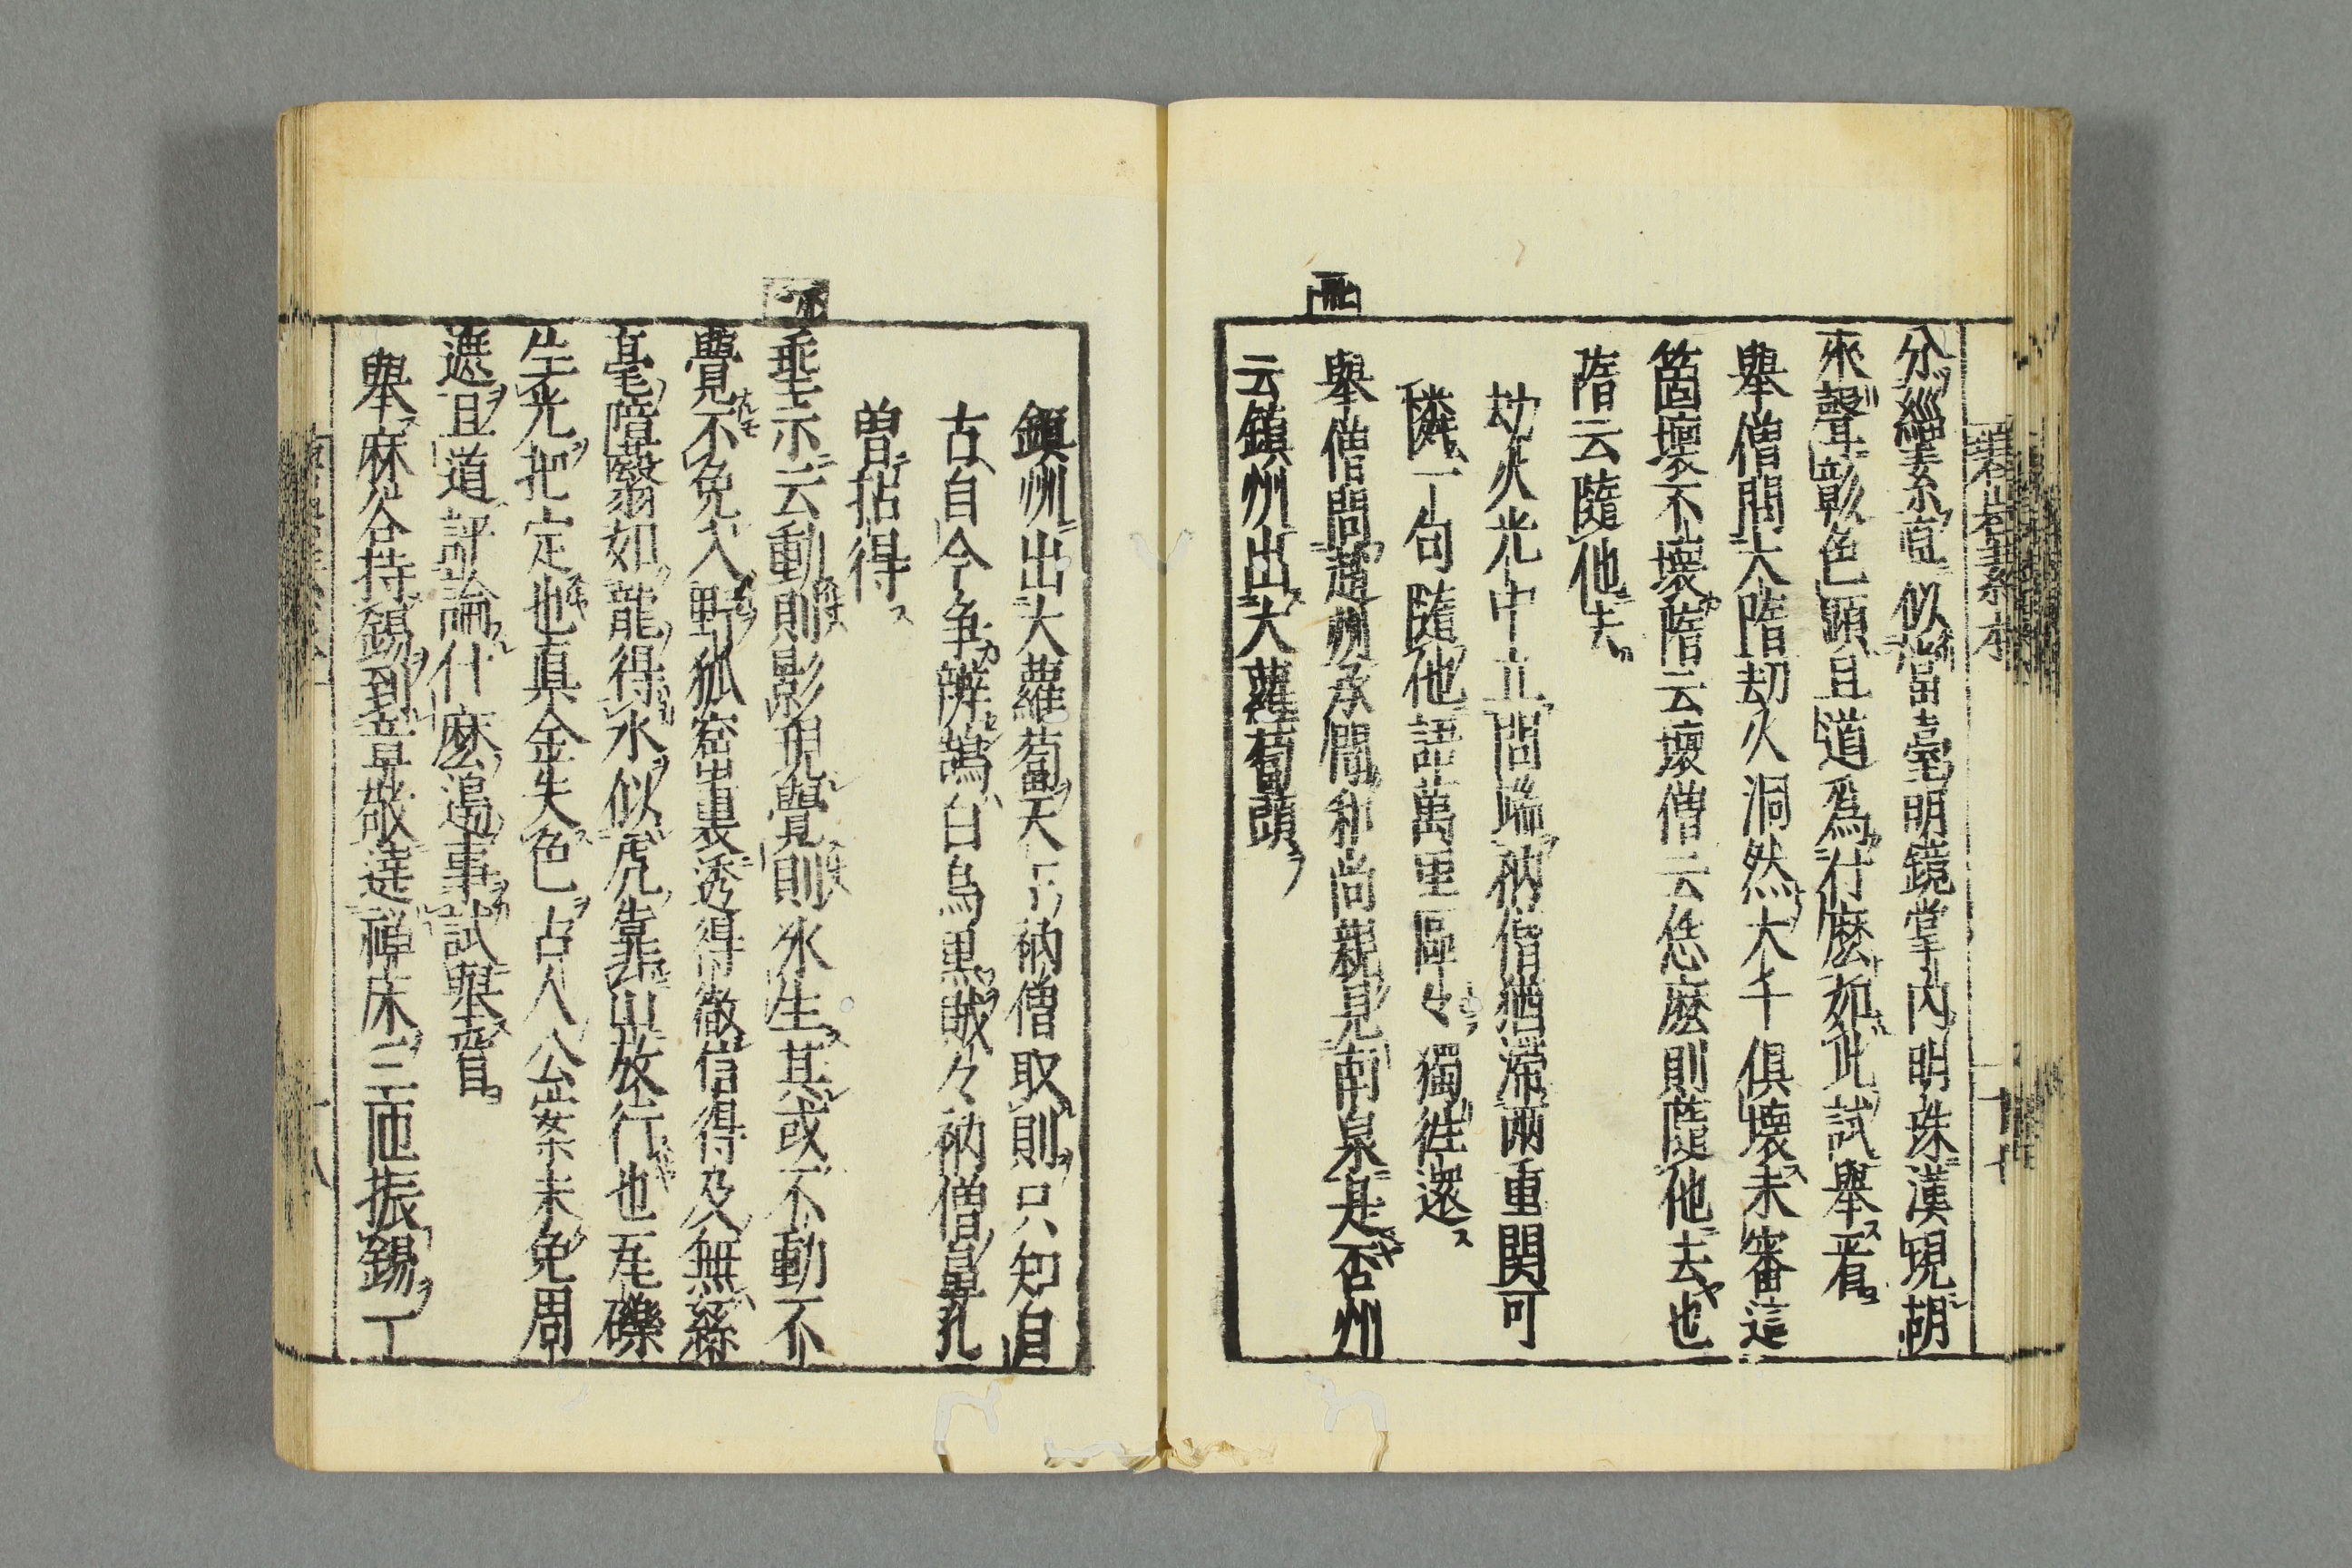 分緇素直似當臺明鏡掌內明珠漢現胡
來聲彰色顯且道爲什麼如此試舉看
舉僧問大隋劫火洞然大千俱壞未審這
箇壞不壞隋云壞僧云恁麼則隨他去也
隋云隨他去
劫火光中立問端衲僧猶滯兩重関可
憐一句隨他語萬里區々獨徃還
舉僧問趙州承聞和尚親見南泉是否州
云鎮州出大蘿蔔頭
鎮州出大蘿蔔天下衲僧取則只知自
古自今争辨鵠白烏黒賊々衲僧鼻孔
曽拈得
垂示云動則影現覺則氷生其或不動不
覺不免入野狐窟裏透得徹信得及無絲
毫障翳如龍得水似虎靠山放行也瓦礫
生光把定也真金失色古人公案未免周
遮且道評論什麼邊事試舉看
舉麻谷持錫到章敬遶禅床三匝振錫一